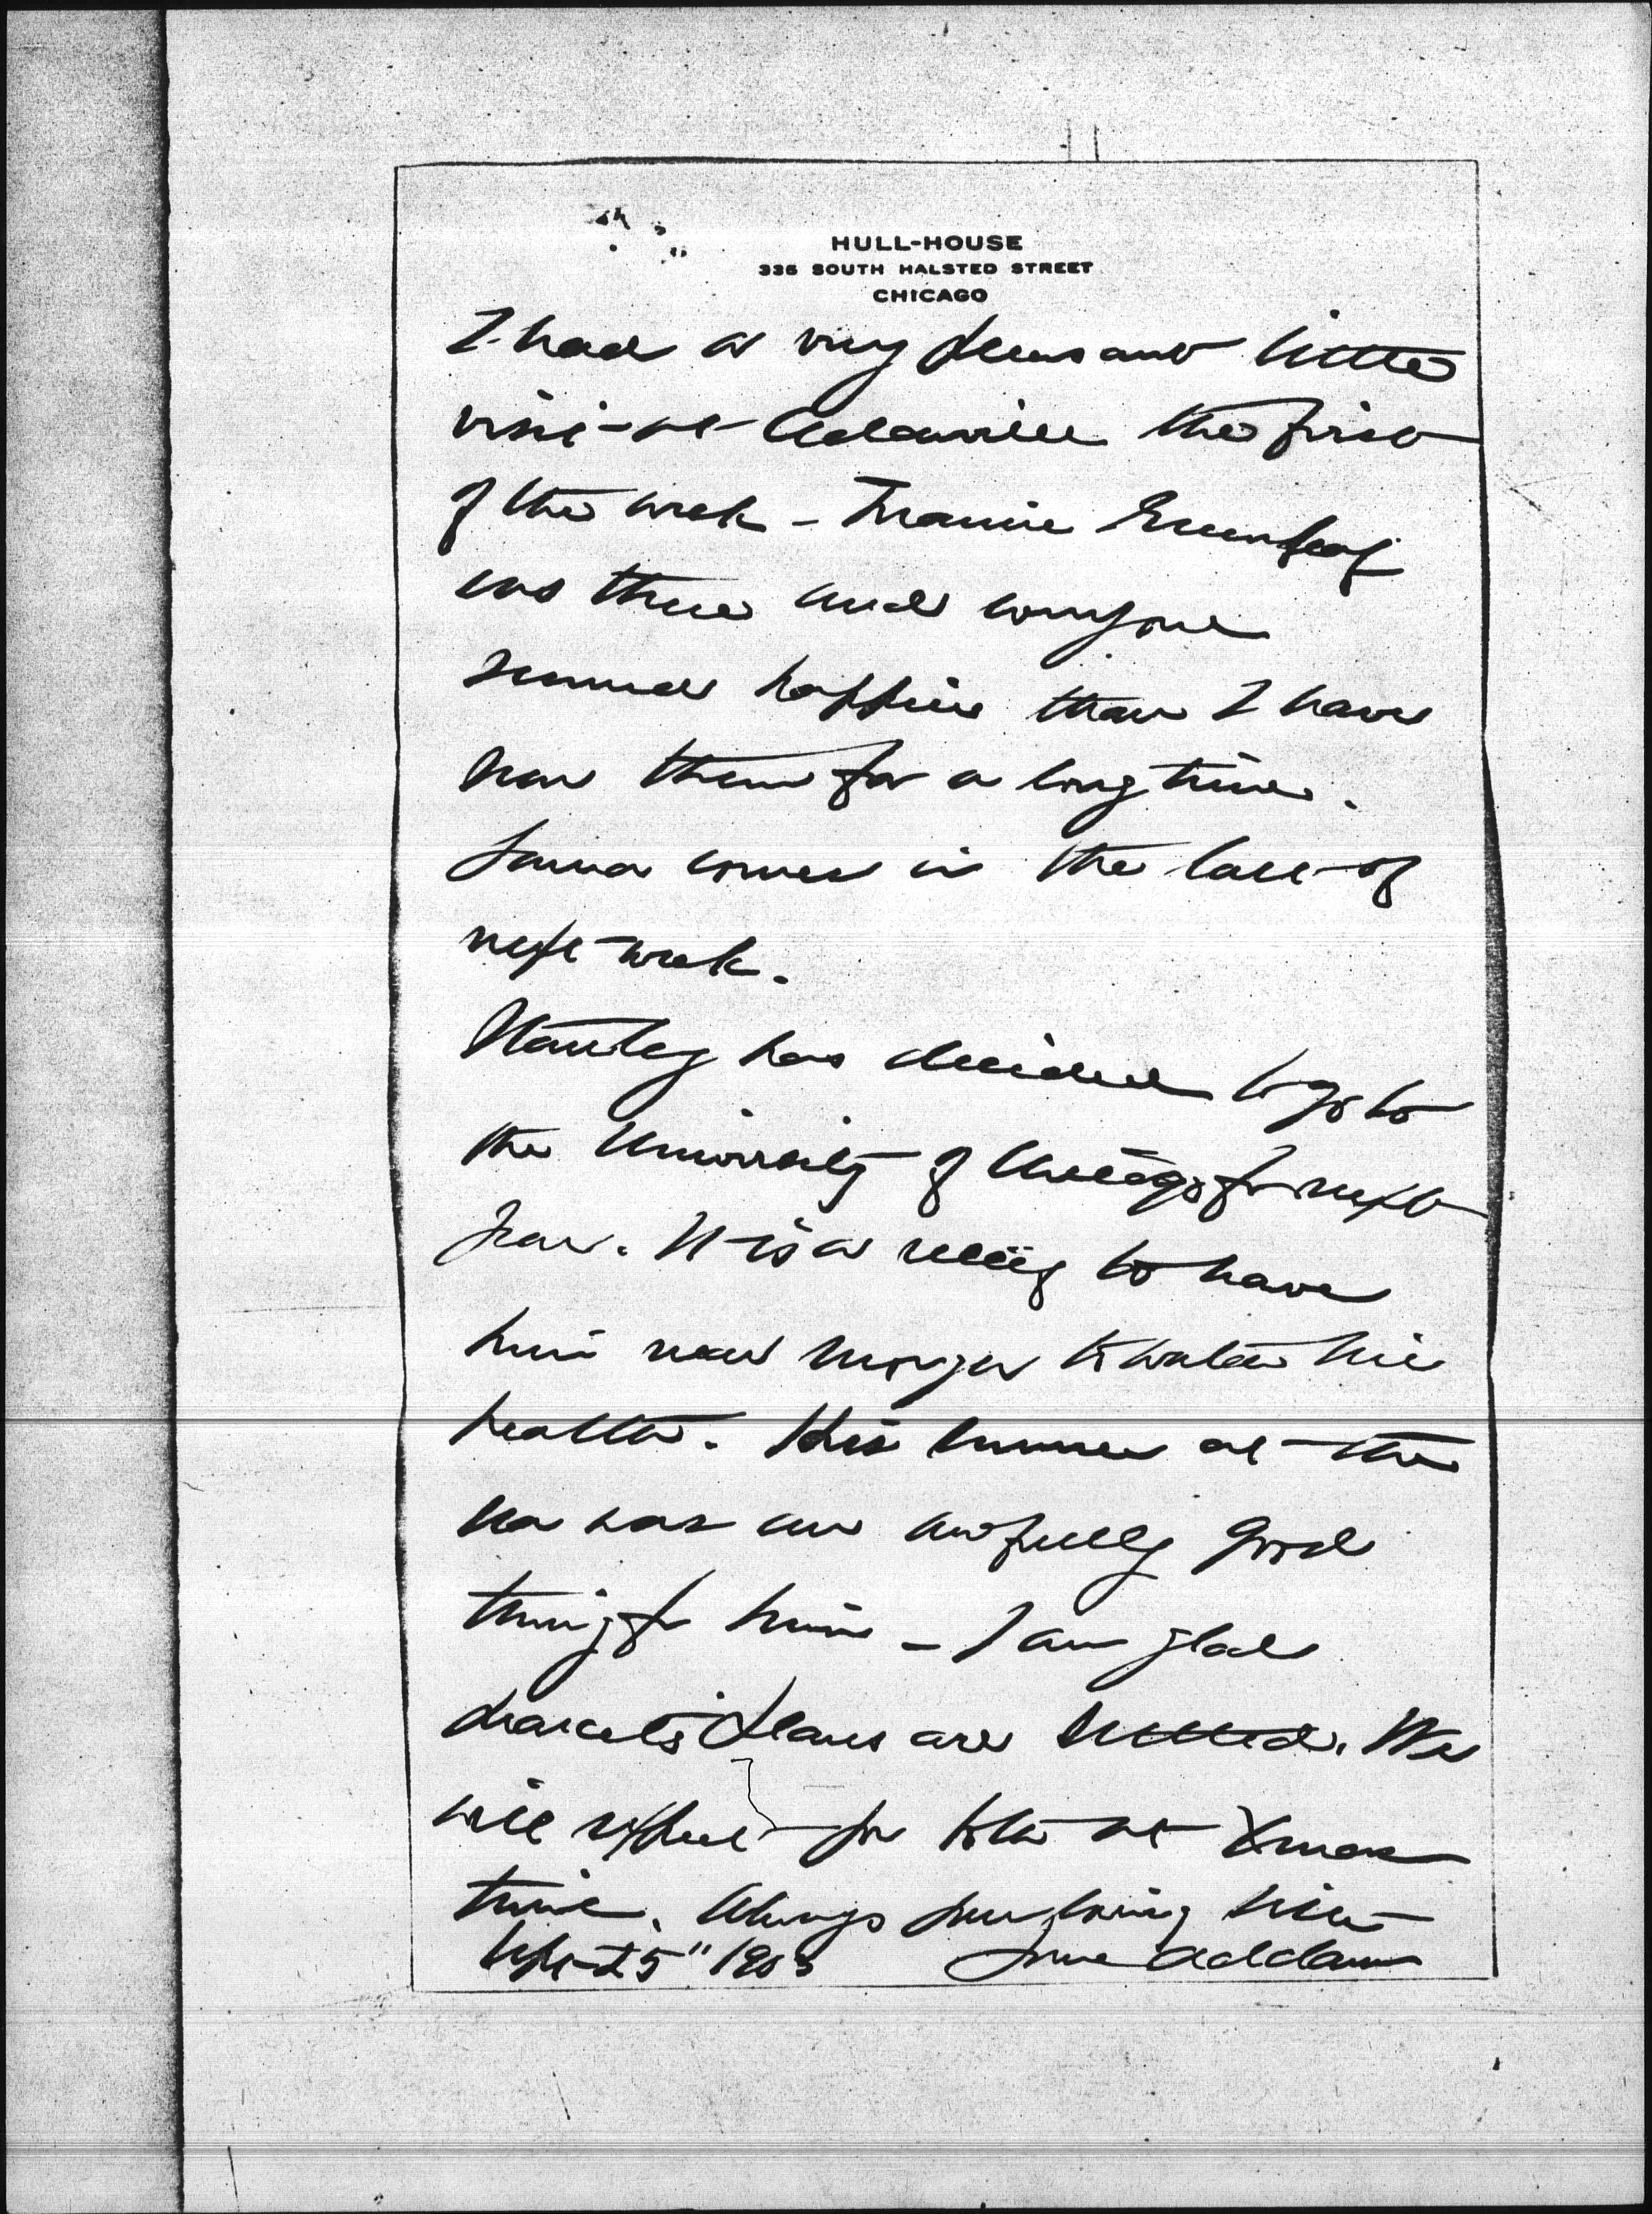 HULL-HOUSE
335 SOUTH HALSTED STREET
CHICAGO
I had a very pleasant little
visit at Cedarville the first
of the week - Frannie Greenleaf
was there and everyone
seemed happier than I have
seen them for a long time.
Laura comes in the last of
next week.
Stanley has decided to go to
the University of Chicago for next
year. It is a relief to have
him near enough to watch his
health. His summer at the
sea was an awfully good
thing for him - I am glad
Marcet's plans are settled. We
will expect for to at Xmas
time. Always your loving
Sept 25" 1903 Jane Addams